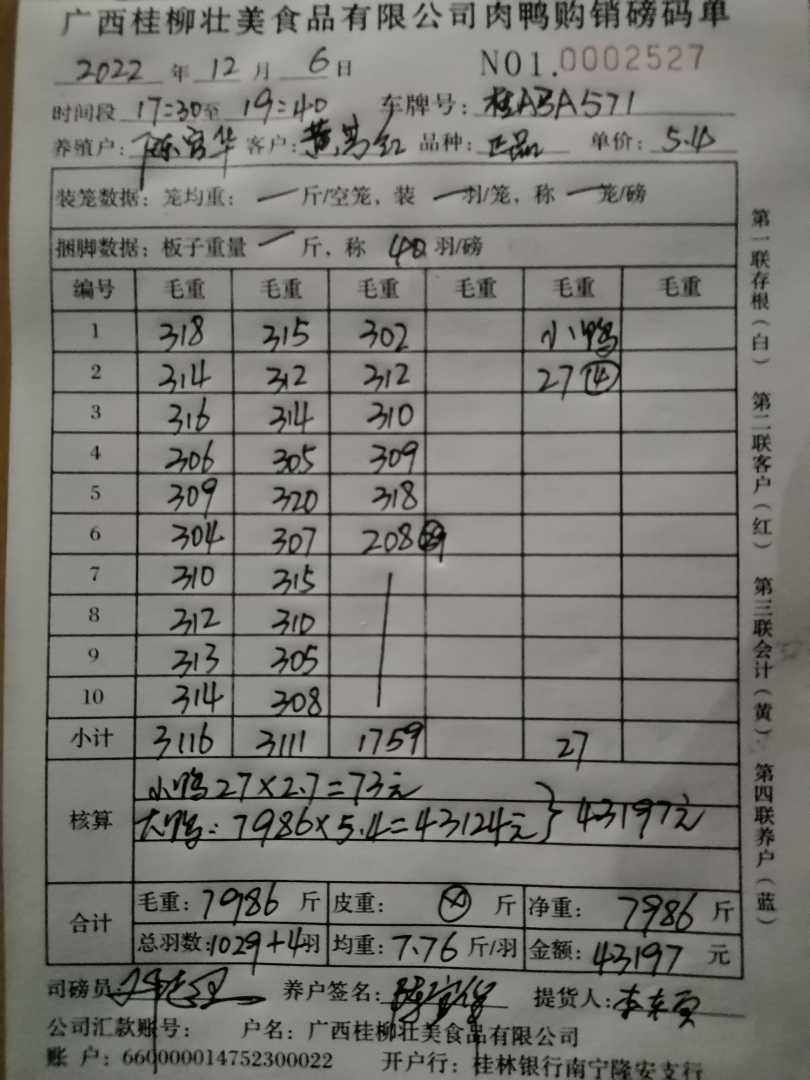 广西桂柳壮美食品有限公司肉鸭购销磅码单
2022 年 12 月 6 日 NO1.0002527
时间段 17:30至 19:40 车牌号: 桂A3A571
养殖户: 陈宫华 客户: 品种: 正品 单价: 5.4
装笼数据: 笼均重: 一 斤/空笼, 装 一 羽/笼, 称 一 笼/磅
捆脚数据: 板子重量 一 斤, 称 40 羽/磅
编号 毛重 毛重 毛重 毛重 毛重 毛重
1 318 315 302 小鸭
2 314 312 312 27 ④
3 316 314 310
4 306 305 309
5 309 320 318
6 304 307 208
7 310 315
8 312 310
9 313 305
10 314 308
小计 3116 3111 1759 27
核算 小鸭27×2.7=73元
大鸭: 7986×5.4=43124元 } 43197元
合计 毛重: 7986 斤 皮重: ⊗ 斤 净重: 7986 斤
总羽数: 1029+4羽 均重: 7.76 斤/羽 金额: 43197 元
司磅员: 养户签名: 提货人:
公司汇款账号: 户名: 广西桂柳壮美食品有限公司
账 户: 660000014752300022 开户行: 桂林银行南宁隆安支行
第一联存根(白) 第二联客户(红) 第三联会计(黄) 第四联养户(蓝)